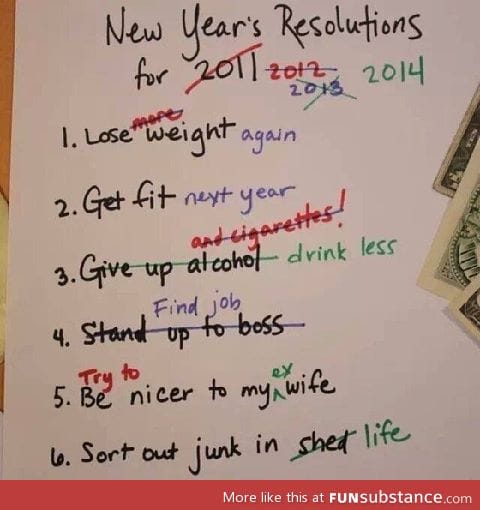 New Year's Resolutions
for 2011 2012 2013 2014
1. Lose more weight again
2. Get fit next year
and cigarettes!
3. Give up alcohol drink less
Find job
4. Stand up to boss
Try to ex
5. Be nicer to my wife
6. Sort out junk in shed life
More like this at FUNsubstance.com